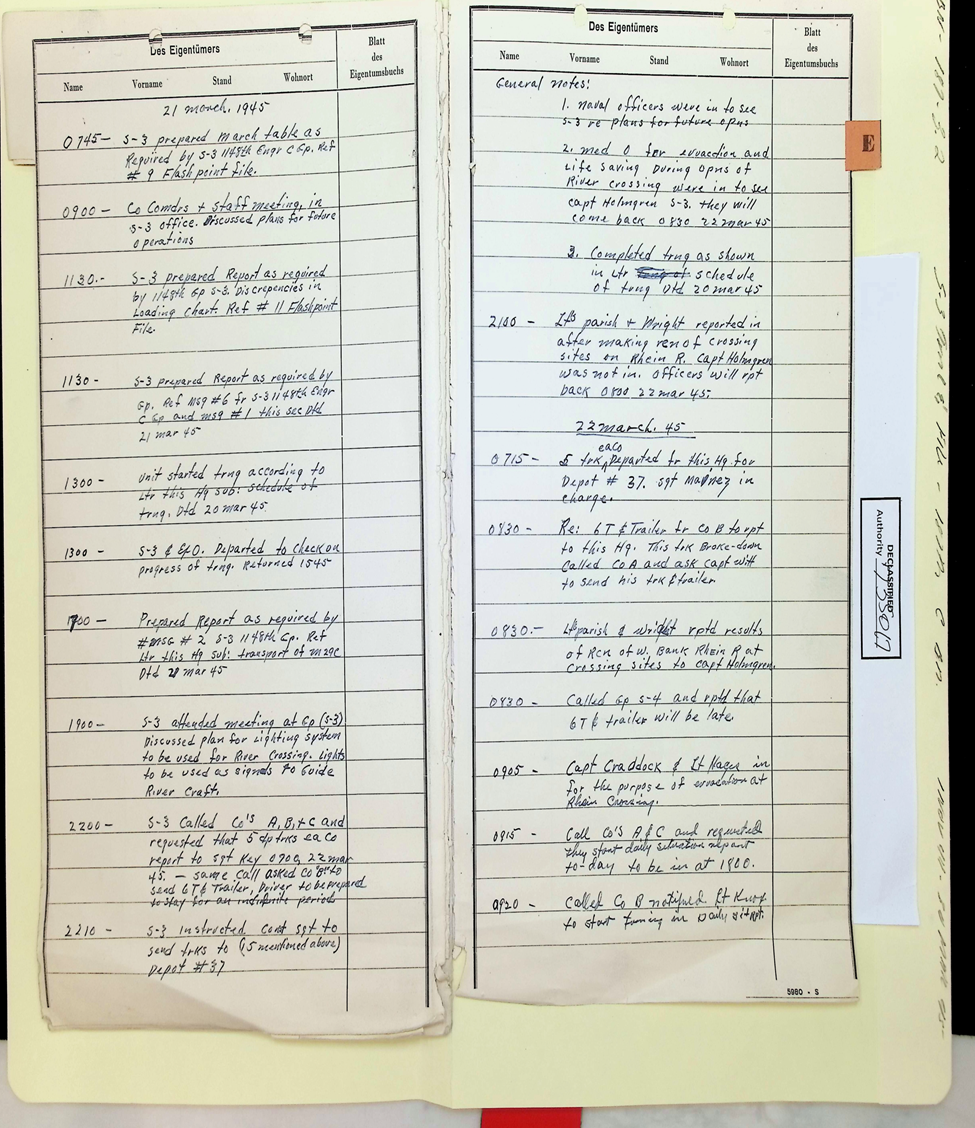 Des Eigentümers
Blatt
des
Eigentumsbuchs
Name Vorname Stand Wohnort
21 March. 1945
0745- S-3 prepared March table as
Required by S-3 1148th Engr C Gp. Ref
# 9 Flashpoint file.
0900- Co Comdrs + staff meeting, in
S-3 office. Discussed plans for future
operations
1130.- S-3 prepared Report as required
by 1148th Gp S-3. Discrepencies in
Loading chart. Ref # 11 Flashpoint
File.
1130- S-3 prepared Report as required by
Gp. Ref Msg #6 fr S-3 1148th Engr
C Gp and msg #1 this sec Dtd
21 mar 45
1300- Unit started trng according to
Ltr this Hq sub: schedule of
trng. Dtd 20 mar 45
1300- S-3 & ExO. Departed to check on
progress of trng. Returned 1545
1700- Prepared Report as required by
#msg # 2 S-3 1148th Gp. Ref
Ltr this Hq sub: transport of
Dtd 21 mar 45
1900- S-3 attended meeting at Gp (S-3)
Discussed plan for Lighting system
to be used for River Crossing. Lights
to be used as signals to Guide
River Craft.
2200- S-3 Called Co's A, B, + C and
requested that 5 dptrks ea Co
report to sgt Key 0700, 22 mar
45. - same call asked Co "B" to
send 6T & Trailer, Driver to be prepared
to stay for an indifinite period
2210- S-3 Instructed Const sgt to
send trks to (15 mentioned above)
Depot #37
Des Eigentümers
Blatt
des
Eigentumsbuchs
Name Vorname Stand Wohnort
General notes:
1. naval officers were in to see
S-3 re plans for future opns
2. med O for evuaction and
Life saving During opns of
River crossing were in to see
capt Holmgren S-3. they will
come back 0830 22 mar 45
3. Completed trng as shown
in Ltr schedule
of trng Dtd 20 mar 45
2100- Lts parish + Wright reported in
after making ren of crossing
sites on Rhein R. Capt Holmgren
was not in. Officers will rpt
back 0800 22 mar 45.
22 march. 45
0715- 5 trk eaCo Departed fr this Hq for
Depot # 37. sgt in
charge.
0830- Re: 6T & Trailer fr Co B to rpt
to this Hq. This trk Broke-down
Called Co A and ask Capt Witt
to send his trk & trailer
0830.- Lts parish & wright rptd results
of Rcn of W. Bank Rhein R at
crossing sites to Capt Holmgren.
0830- Called Gp S-4 and rptd that
6T & trailer will be late.
0905- Capt Craddock & Lt in
for the purpose of evacation at
Rhein Crossing.
0915- Call Co's A & C and requested
they start daily situation report
to-day to be in at 1800.
0920- Called Co B notified Lt
to start turning in Daily sit Rpt.
5980 - S
E
DECLASSIFIED
Authority 735017